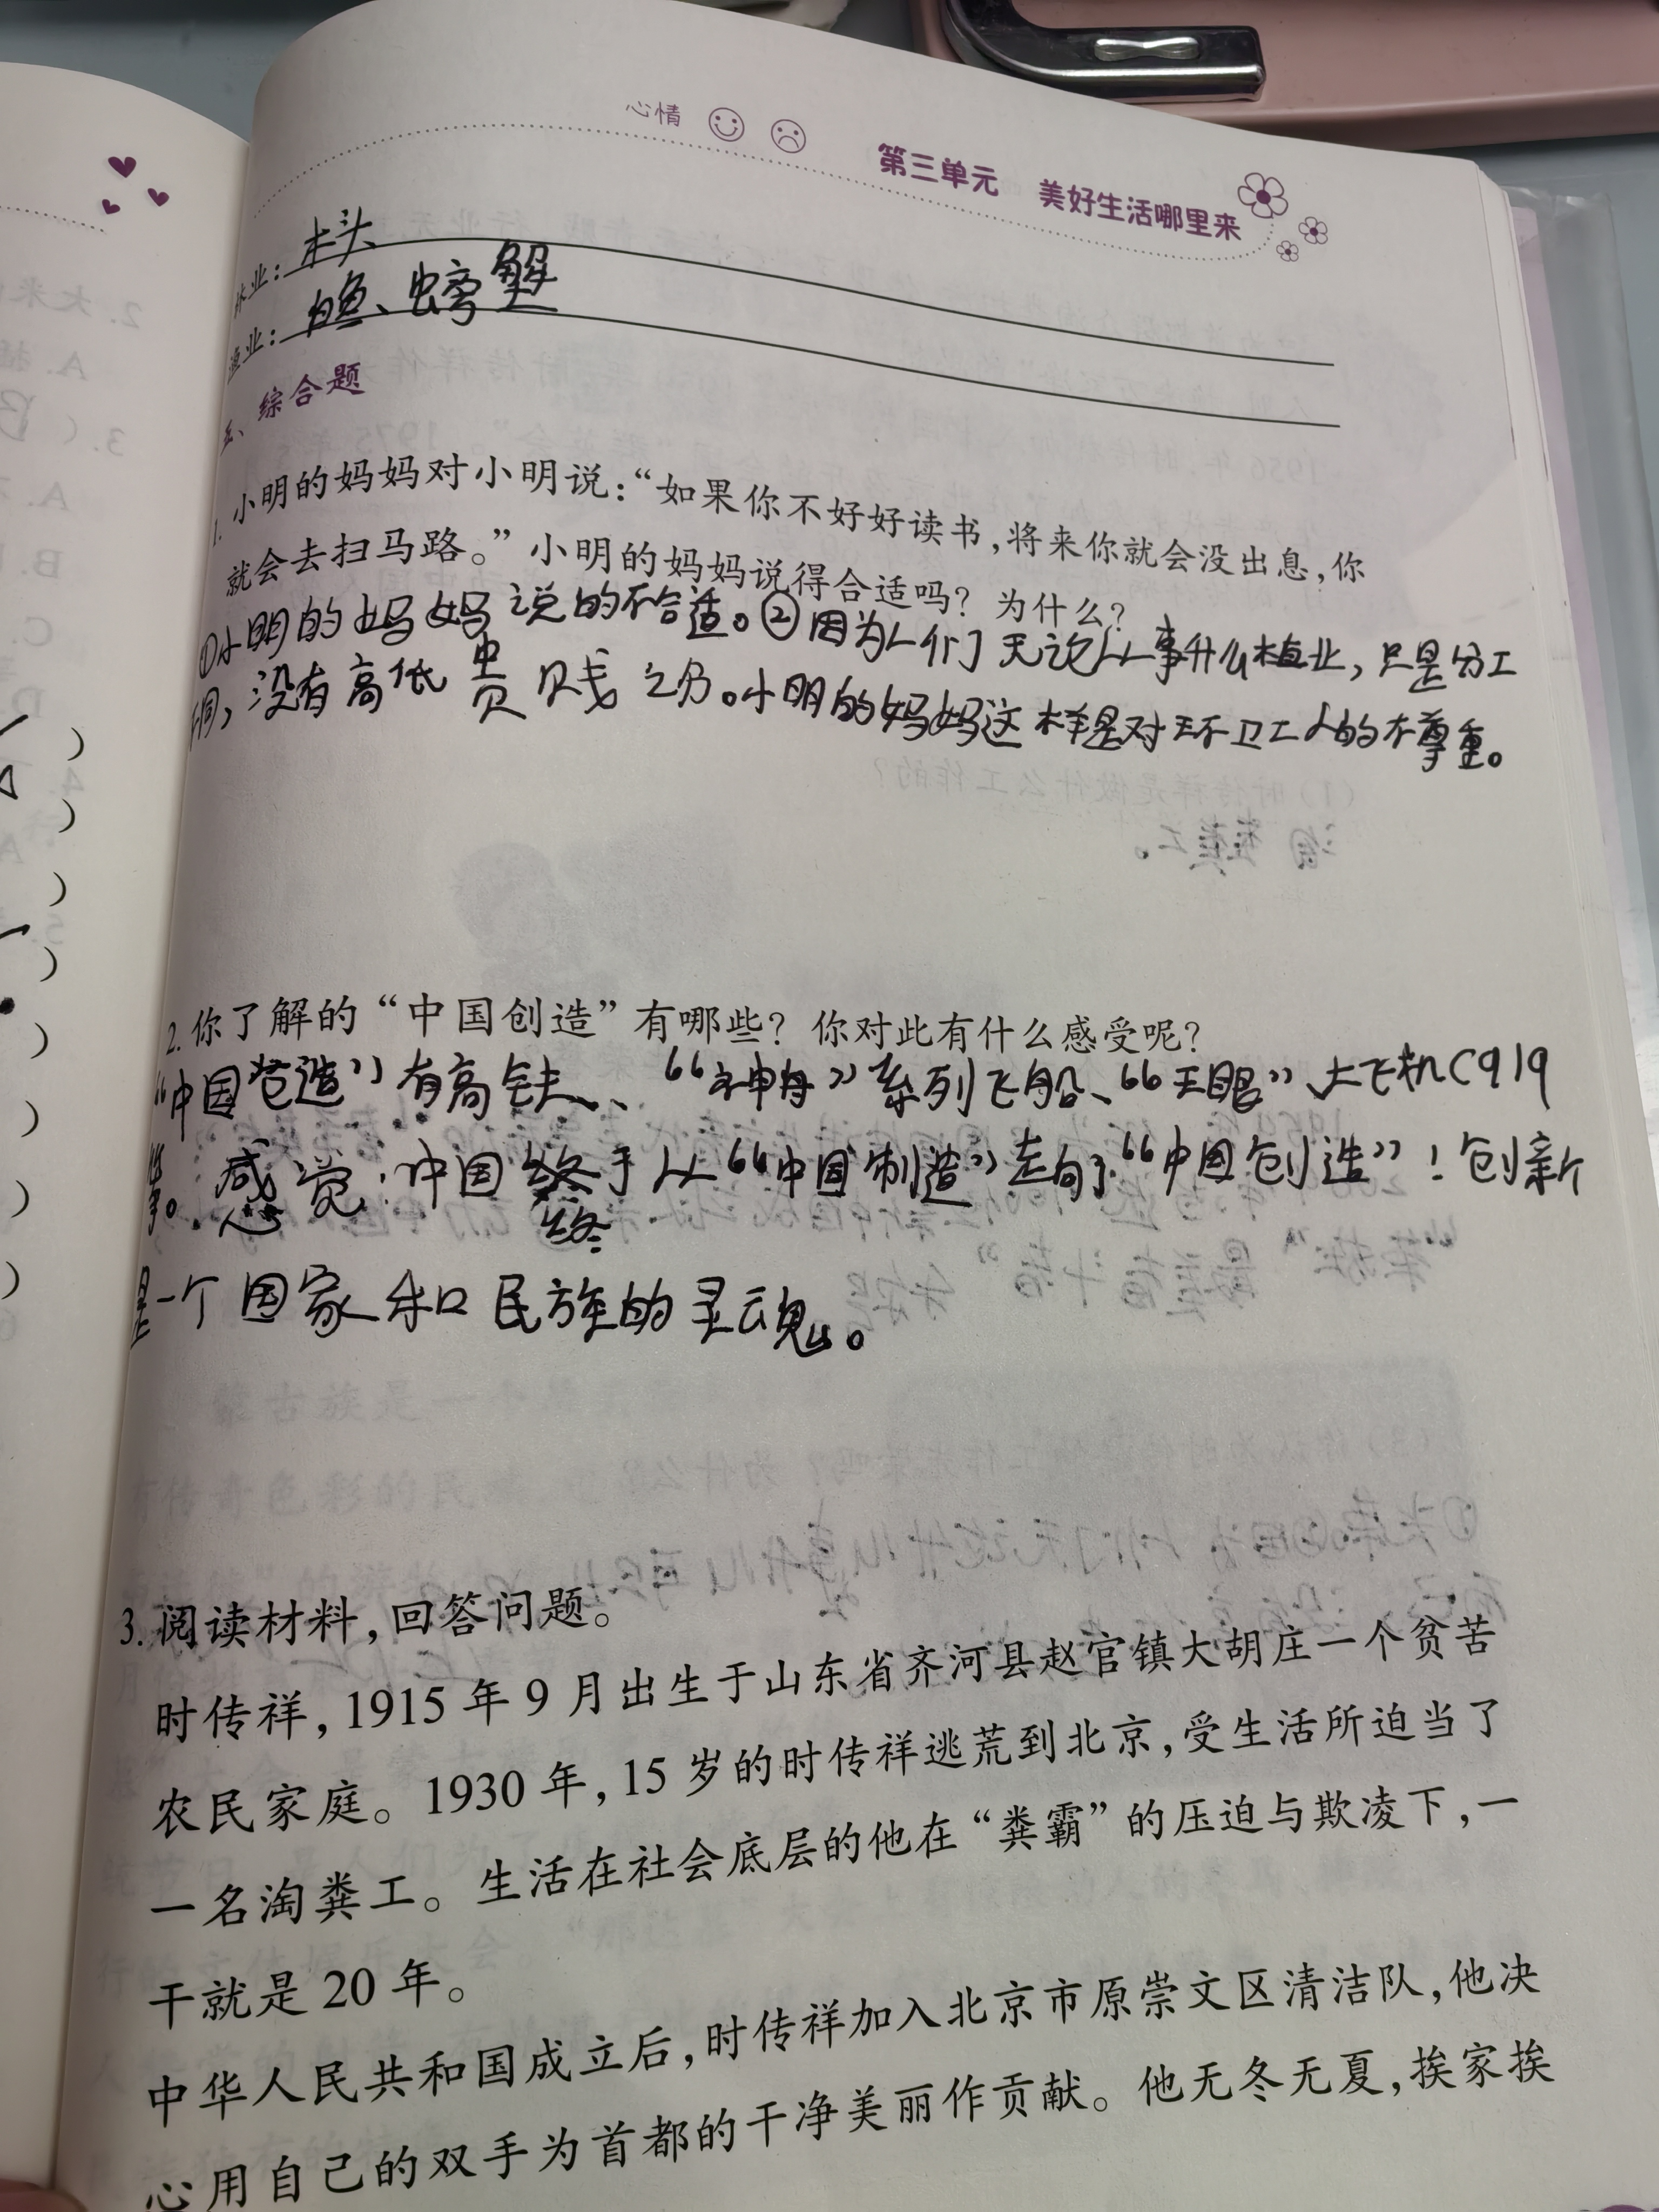 心情
第三单元 美好生活哪里来
林业：木头
渔业：鱼、螃蟹
五、综合题
1. 小明的妈妈对小明说：“如果你不好好读书，将来你就会没出息，你
就会去扫马路。”小明的妈妈说得合适吗？为什么？
①小明的妈妈说的不合适。②因为人们无论从事什么植业，只是分工
不同，没有高低贵贱之分。小明的妈妈这样是对环卫工人的不尊重。
2. 你了解的“中国创造”有哪些？你对此有什么感受呢？
“中国造”有高铁、“神舟”系列飞船、“天眼”、大飞机C919
等。感觉：中国终于从“中国制造”走向了“中国创造”！创新
终
是一个国家和民族的灵魂。
3. 阅读材料，回答问题。
时传祥，1915年9月出生于山东省齐河县赵官镇大胡庄一个贫苦
农民家庭。1930年，15岁的时传祥逃荒到北京，受生活所迫当了
一名淘粪工。生活在社会底层的他在“粪霸”的压迫与欺凌下，一
干就是20年。
中华人民共和国成立后，时传祥加入北京市原崇文区清洁队，他决
心用自己的双手为首都的干净美丽作贡献。他无冬无夏，挨家挨